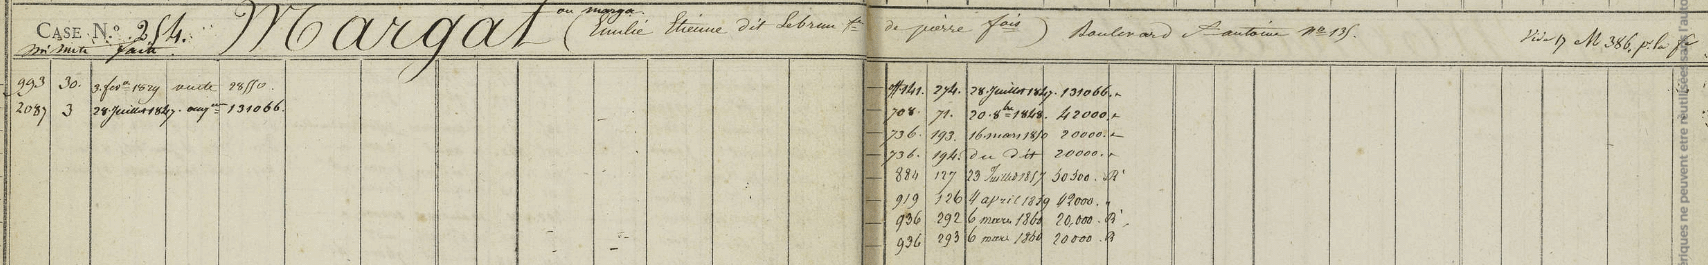 CASE N.o 254. Margat ou marga (Emilie Etienne dit Lebrun fe de pierre fois) Boulevard St antoine no 135. Vide 17 M 386. p. la fe
mi mute faite
993 30. 3. fevr 1829 vente 28550. 11.141. 274. 28. Juillet 1847. 131066.
2087 3 28 Juillet 1847. aug on 131066. 708. 71. 20. 8bre 1848. 42000.
736. 193. 16 mars 1850 20000.
736. 194. du dit 20000.
884 127 23 Juillet 1857 30300. R
919 126 4 april 1859 42000.
936 292 6 mars 1860 20,000. R
936 293 6 mars 1860 20000. R